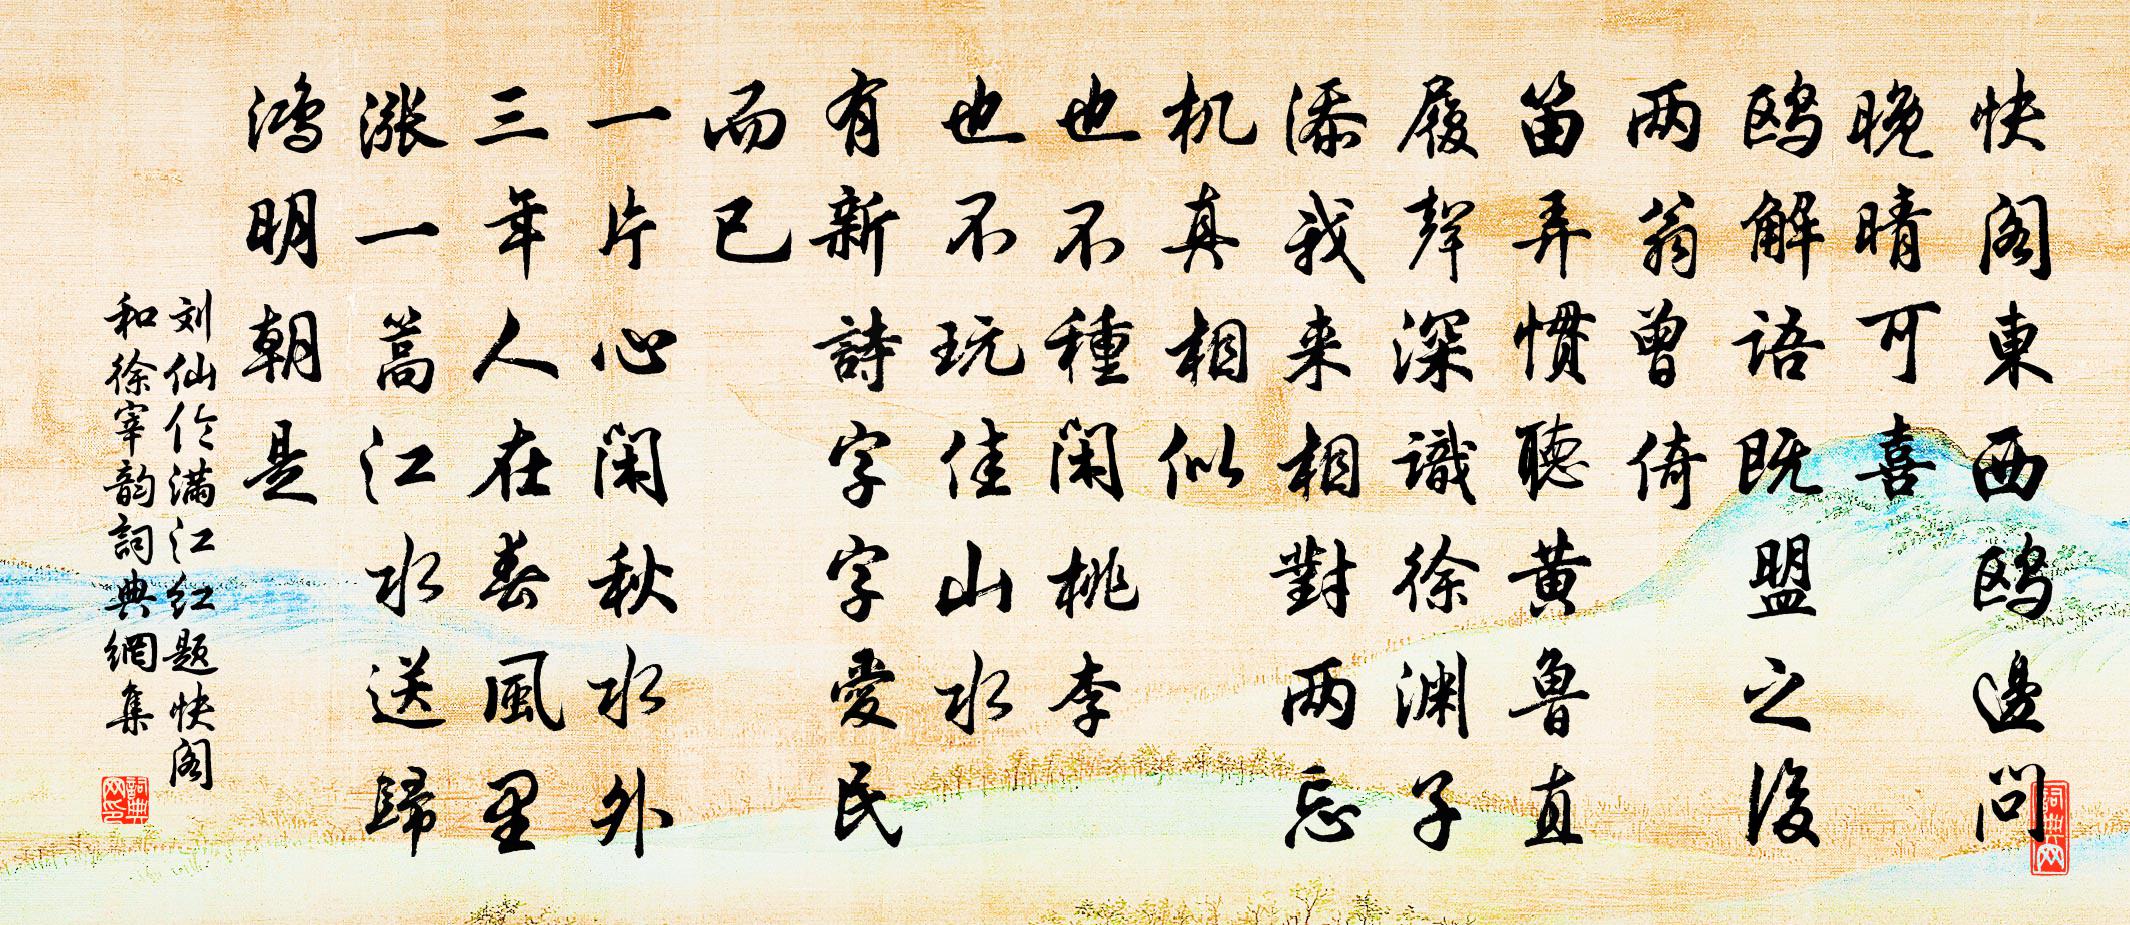 快阁東西鸥邊问
晚晴可喜
鸥解语既盟之後
两翁曾倚
笛弄惯聽黄鲁直
履聲深識徐渊子
添我来相對两忘
机真相似
也不種闲桃李
也不玩佳山水
有新詩字字愛民
而已
一片心闲秋水外
三年人在春風里
涨一篙江水送歸
鸿明朝是
刘仙伦满江红题快阁
和徐宰韵詞典網集
詞典网印
詞典网